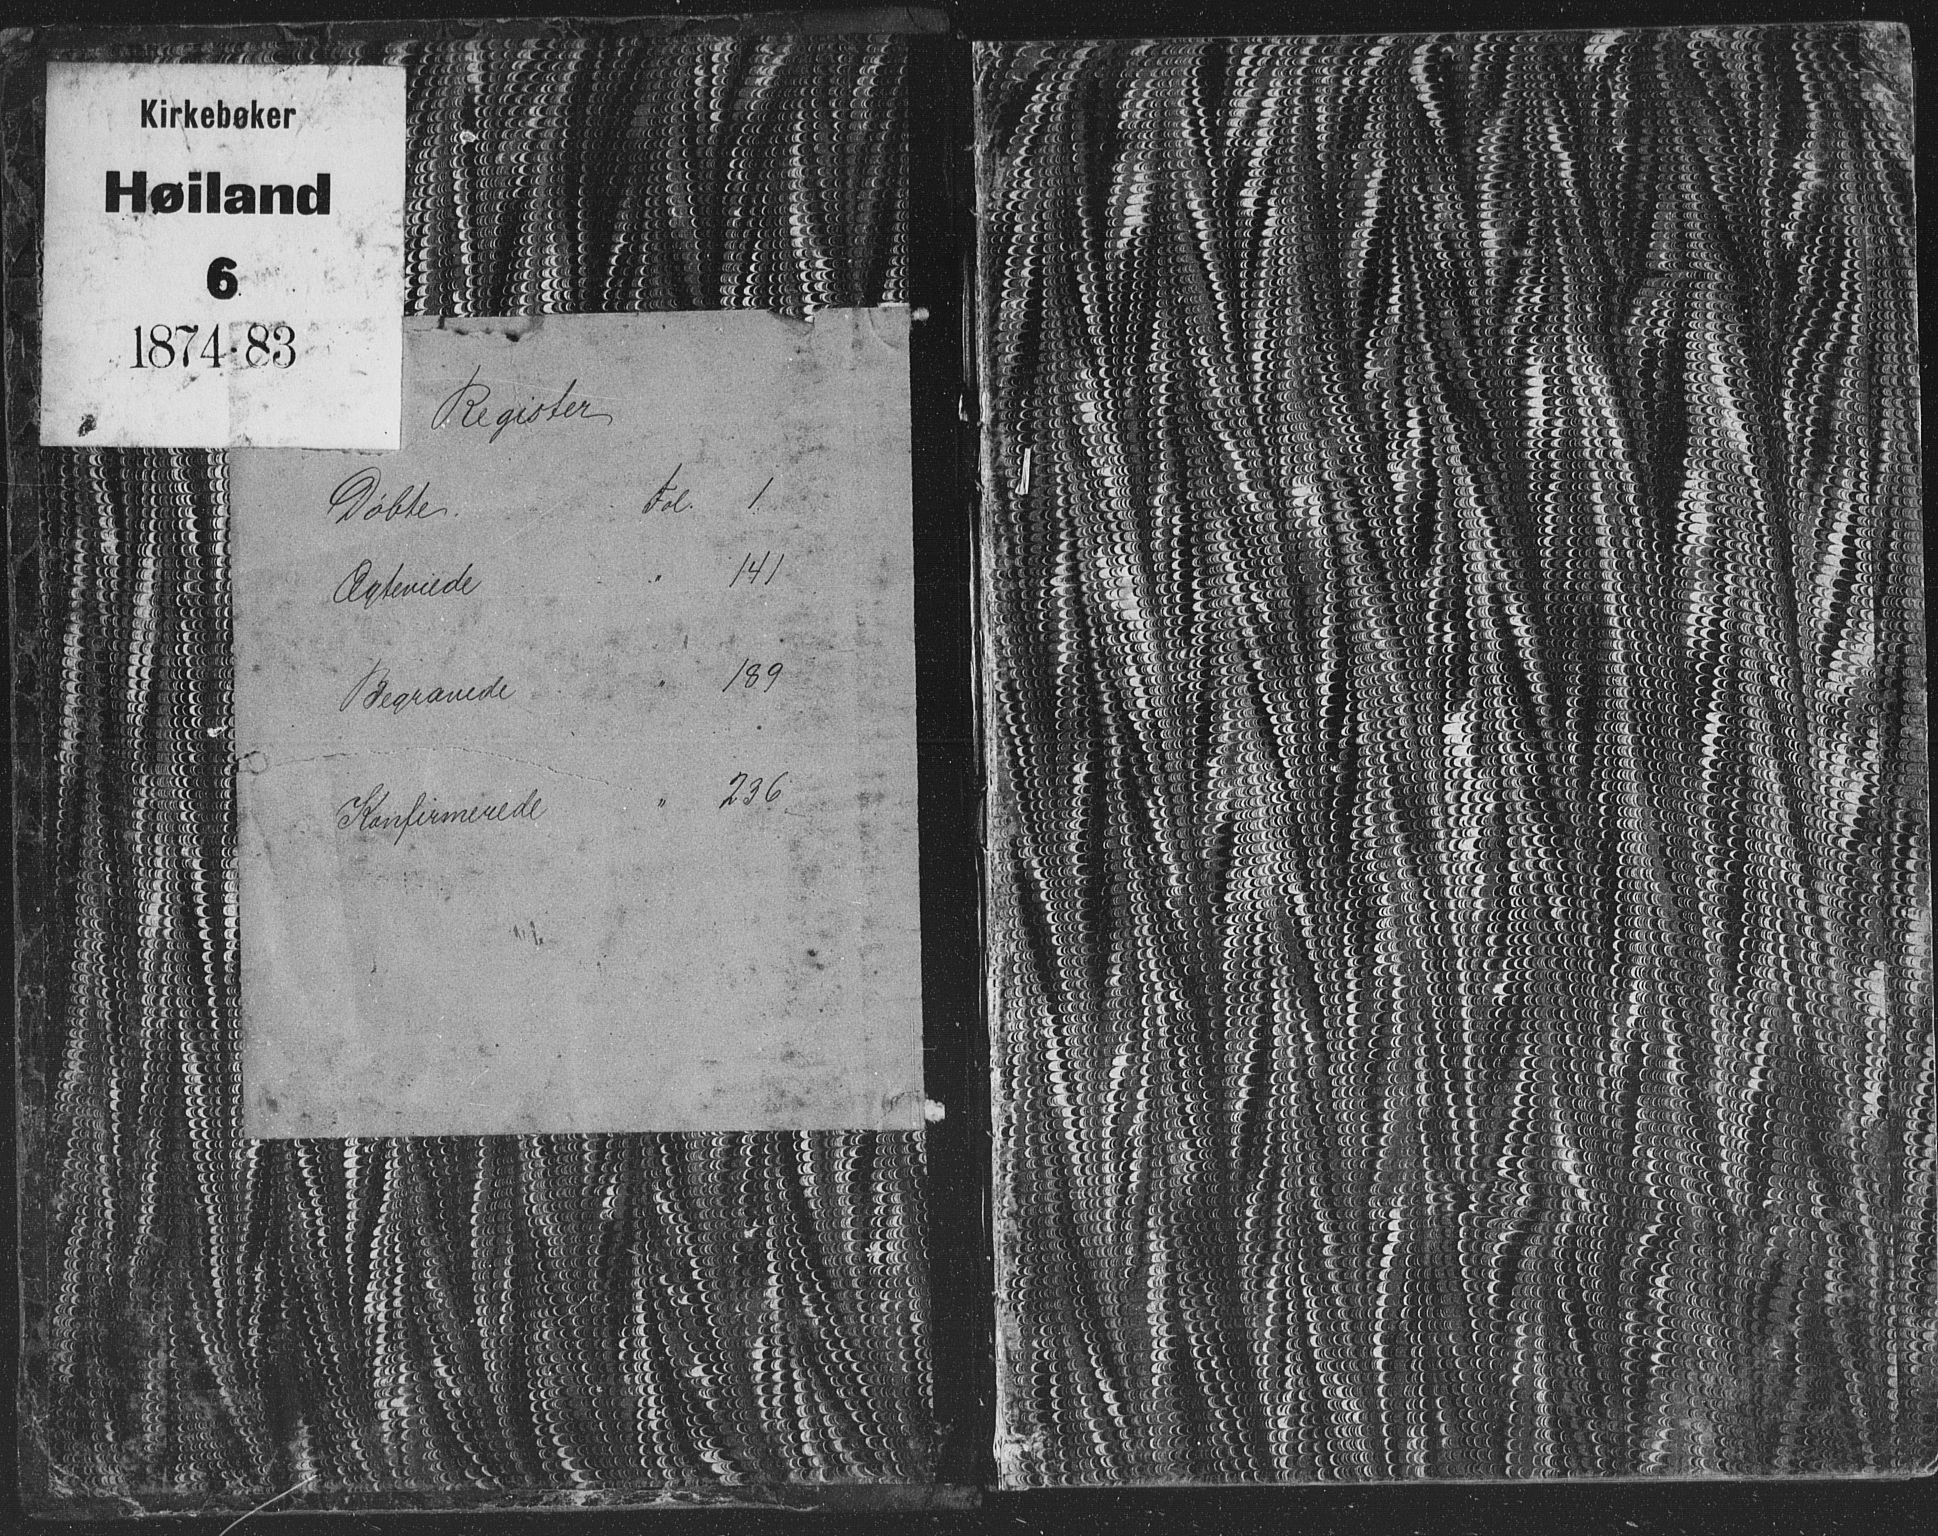 Kirkebøker
Høiland
6
1874-83
Register
Døbte. Fol. 1.
Ægteviede " 141
Begravede " 189
Konfirmerede " 236